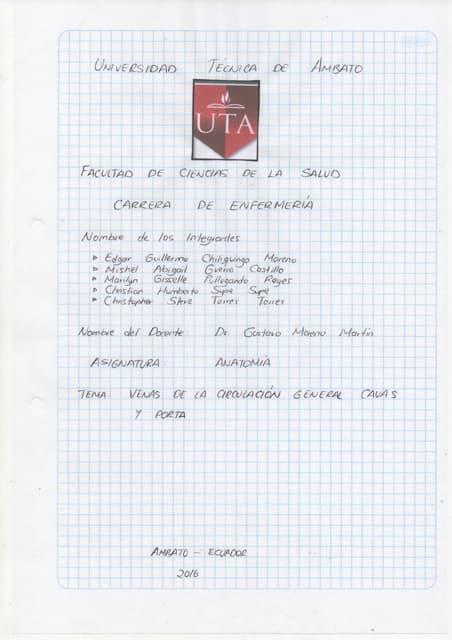 UNIVERSIDAD TÉCNICA DE AMBATO
UTA
FACULTAD DE CIENCIAS DE LA SALUD
CARRERA DE ENFERMERÍA
Nombre de los Integrantes
Edgar Guillermo Chiliguinga Moreno
Mishel Abigail Castillo
Marilyn Gisselle Pullugando Reyes
Christian Humberto Supe Supe
Christopher Steve Torres Torres
Nombre del Docente: Dr. Gustavo Moreno Martín
ASIGNATURA: ANATOMÍA
TEMA: VENAS DE LA CIRCULACIÓN GENERAL CAVAS
Y PORTA
AMBATO - ECUADOR
2016